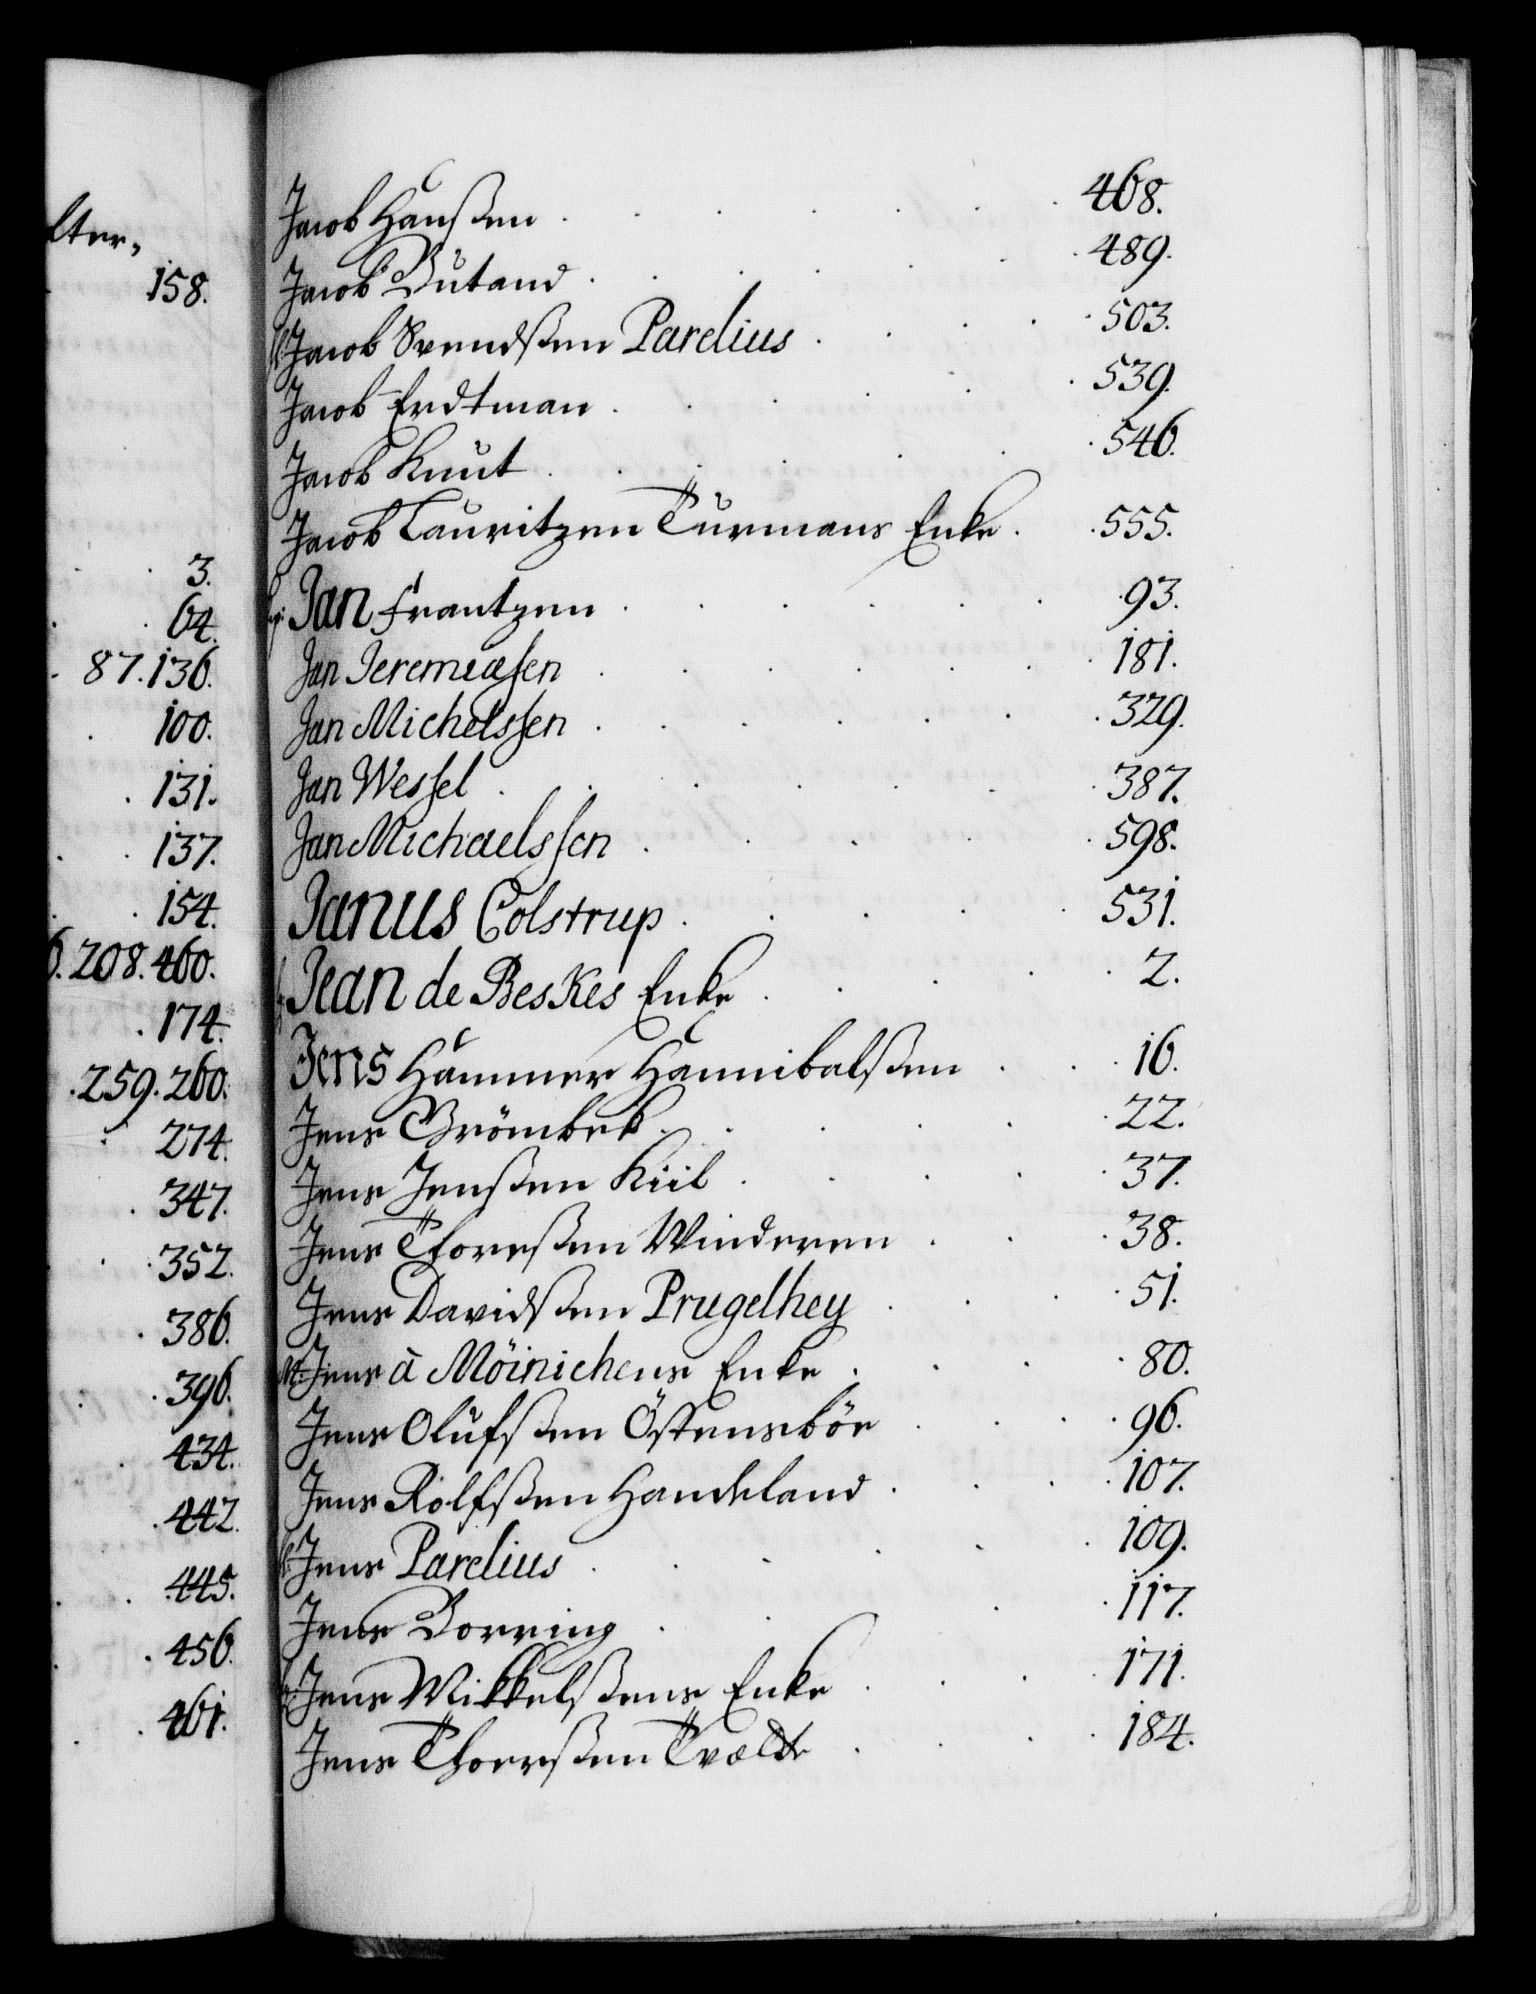 lter,
158.
3.
64.
87. 136.
100.
131.
137.
154.
6. 208. 460.
174.
259. 260.
274.
347.
352.
386.
396.
434.
442.
445.
456.
461.
Jacob Hanßen . . . . . 468.
Jacob Butand . . . . . 489.
Jacob Svendßen Parelius . . . . 503.
Jacob Erdtman . . . . . 539.
Jacob Knut . . . . . 546.
Jacob Lauritzen Turmans Enke . . 555.
Jan Frantzen . . . . . 93.
Jan Jeremiæsen . . . . . 181.
Jan Michelssen . . . . . 329.
Jan Wessel . . . . . 387.
Jan Michaelssen . . . . . 598.
Janus Colstrup . . . . . 531.
Jean de Beskes Enke . . . . 2.
Jens Hammer Hannibalßen . . . 16.
Jens Grömbek . . . . . 22.
Jens Jenßen Kiil . . . . 37.
Jens Thoreßen Winderen . . . 38.
Jens Davidßen Prugelhey . . . 51.
Jens à Möinichens Enke . . . 80.
Jens Olufßen Östensböe . . . 96.
Jens Rolfßen Handeland . . . 107.
Jens Parelius . . . . . 109.
Jens Borring . . . 117.
Jens Mikkelßens Enke . . . 171.
Jens Thoerßen Tvælte . . . 184.